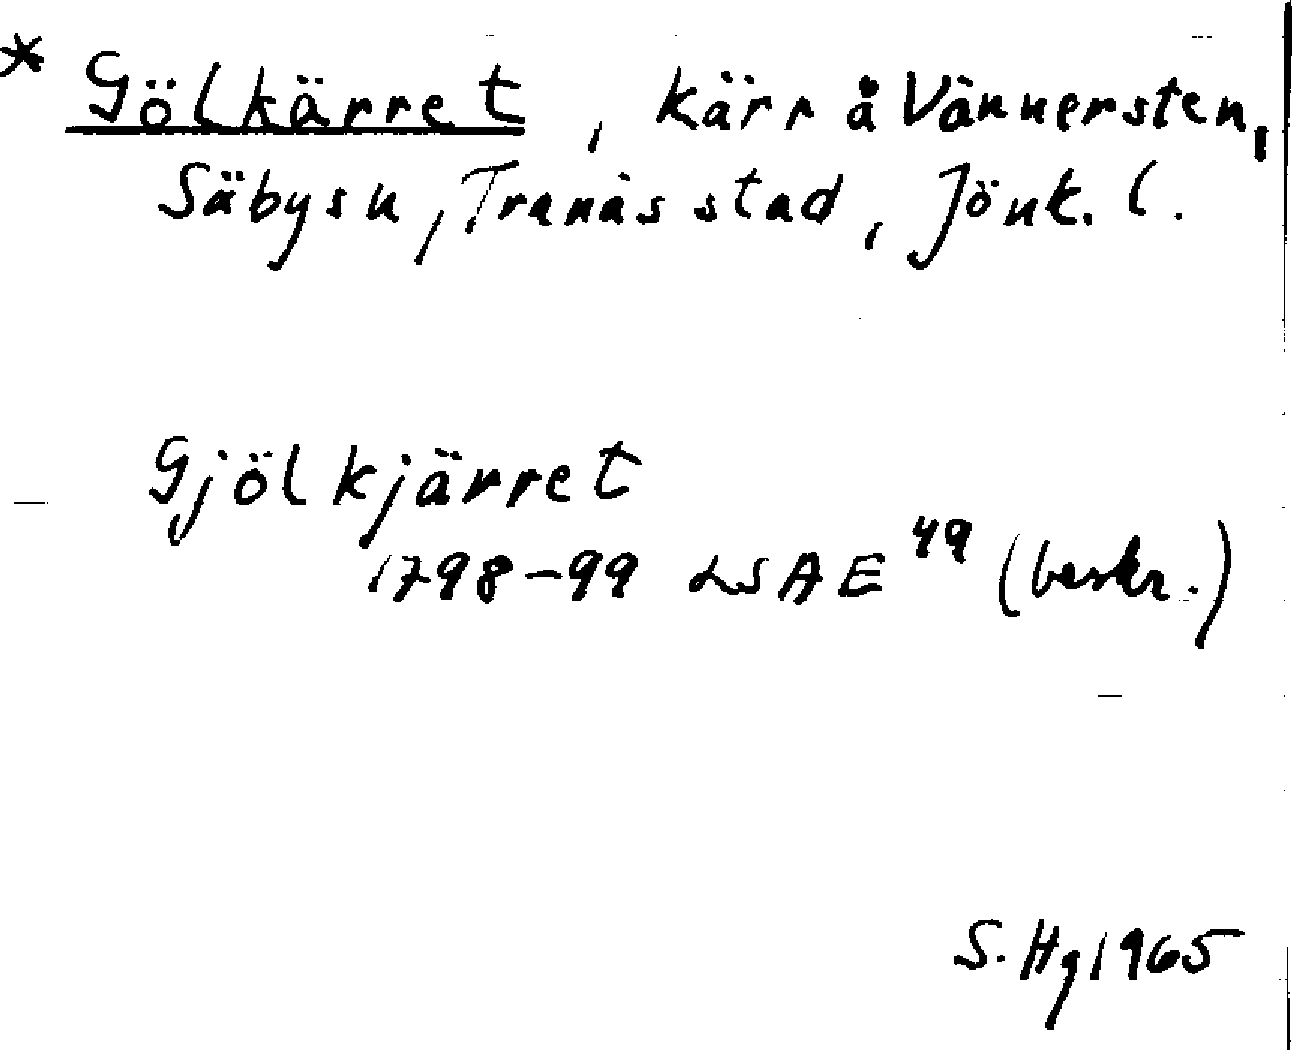 * Gölkärret, kärr å Vännersten,
Säby sn, Tranås stad, Jönk. l.
Gjölkjärret
1798-99 LSA E 49 (beskr.)
S. Hg 1965